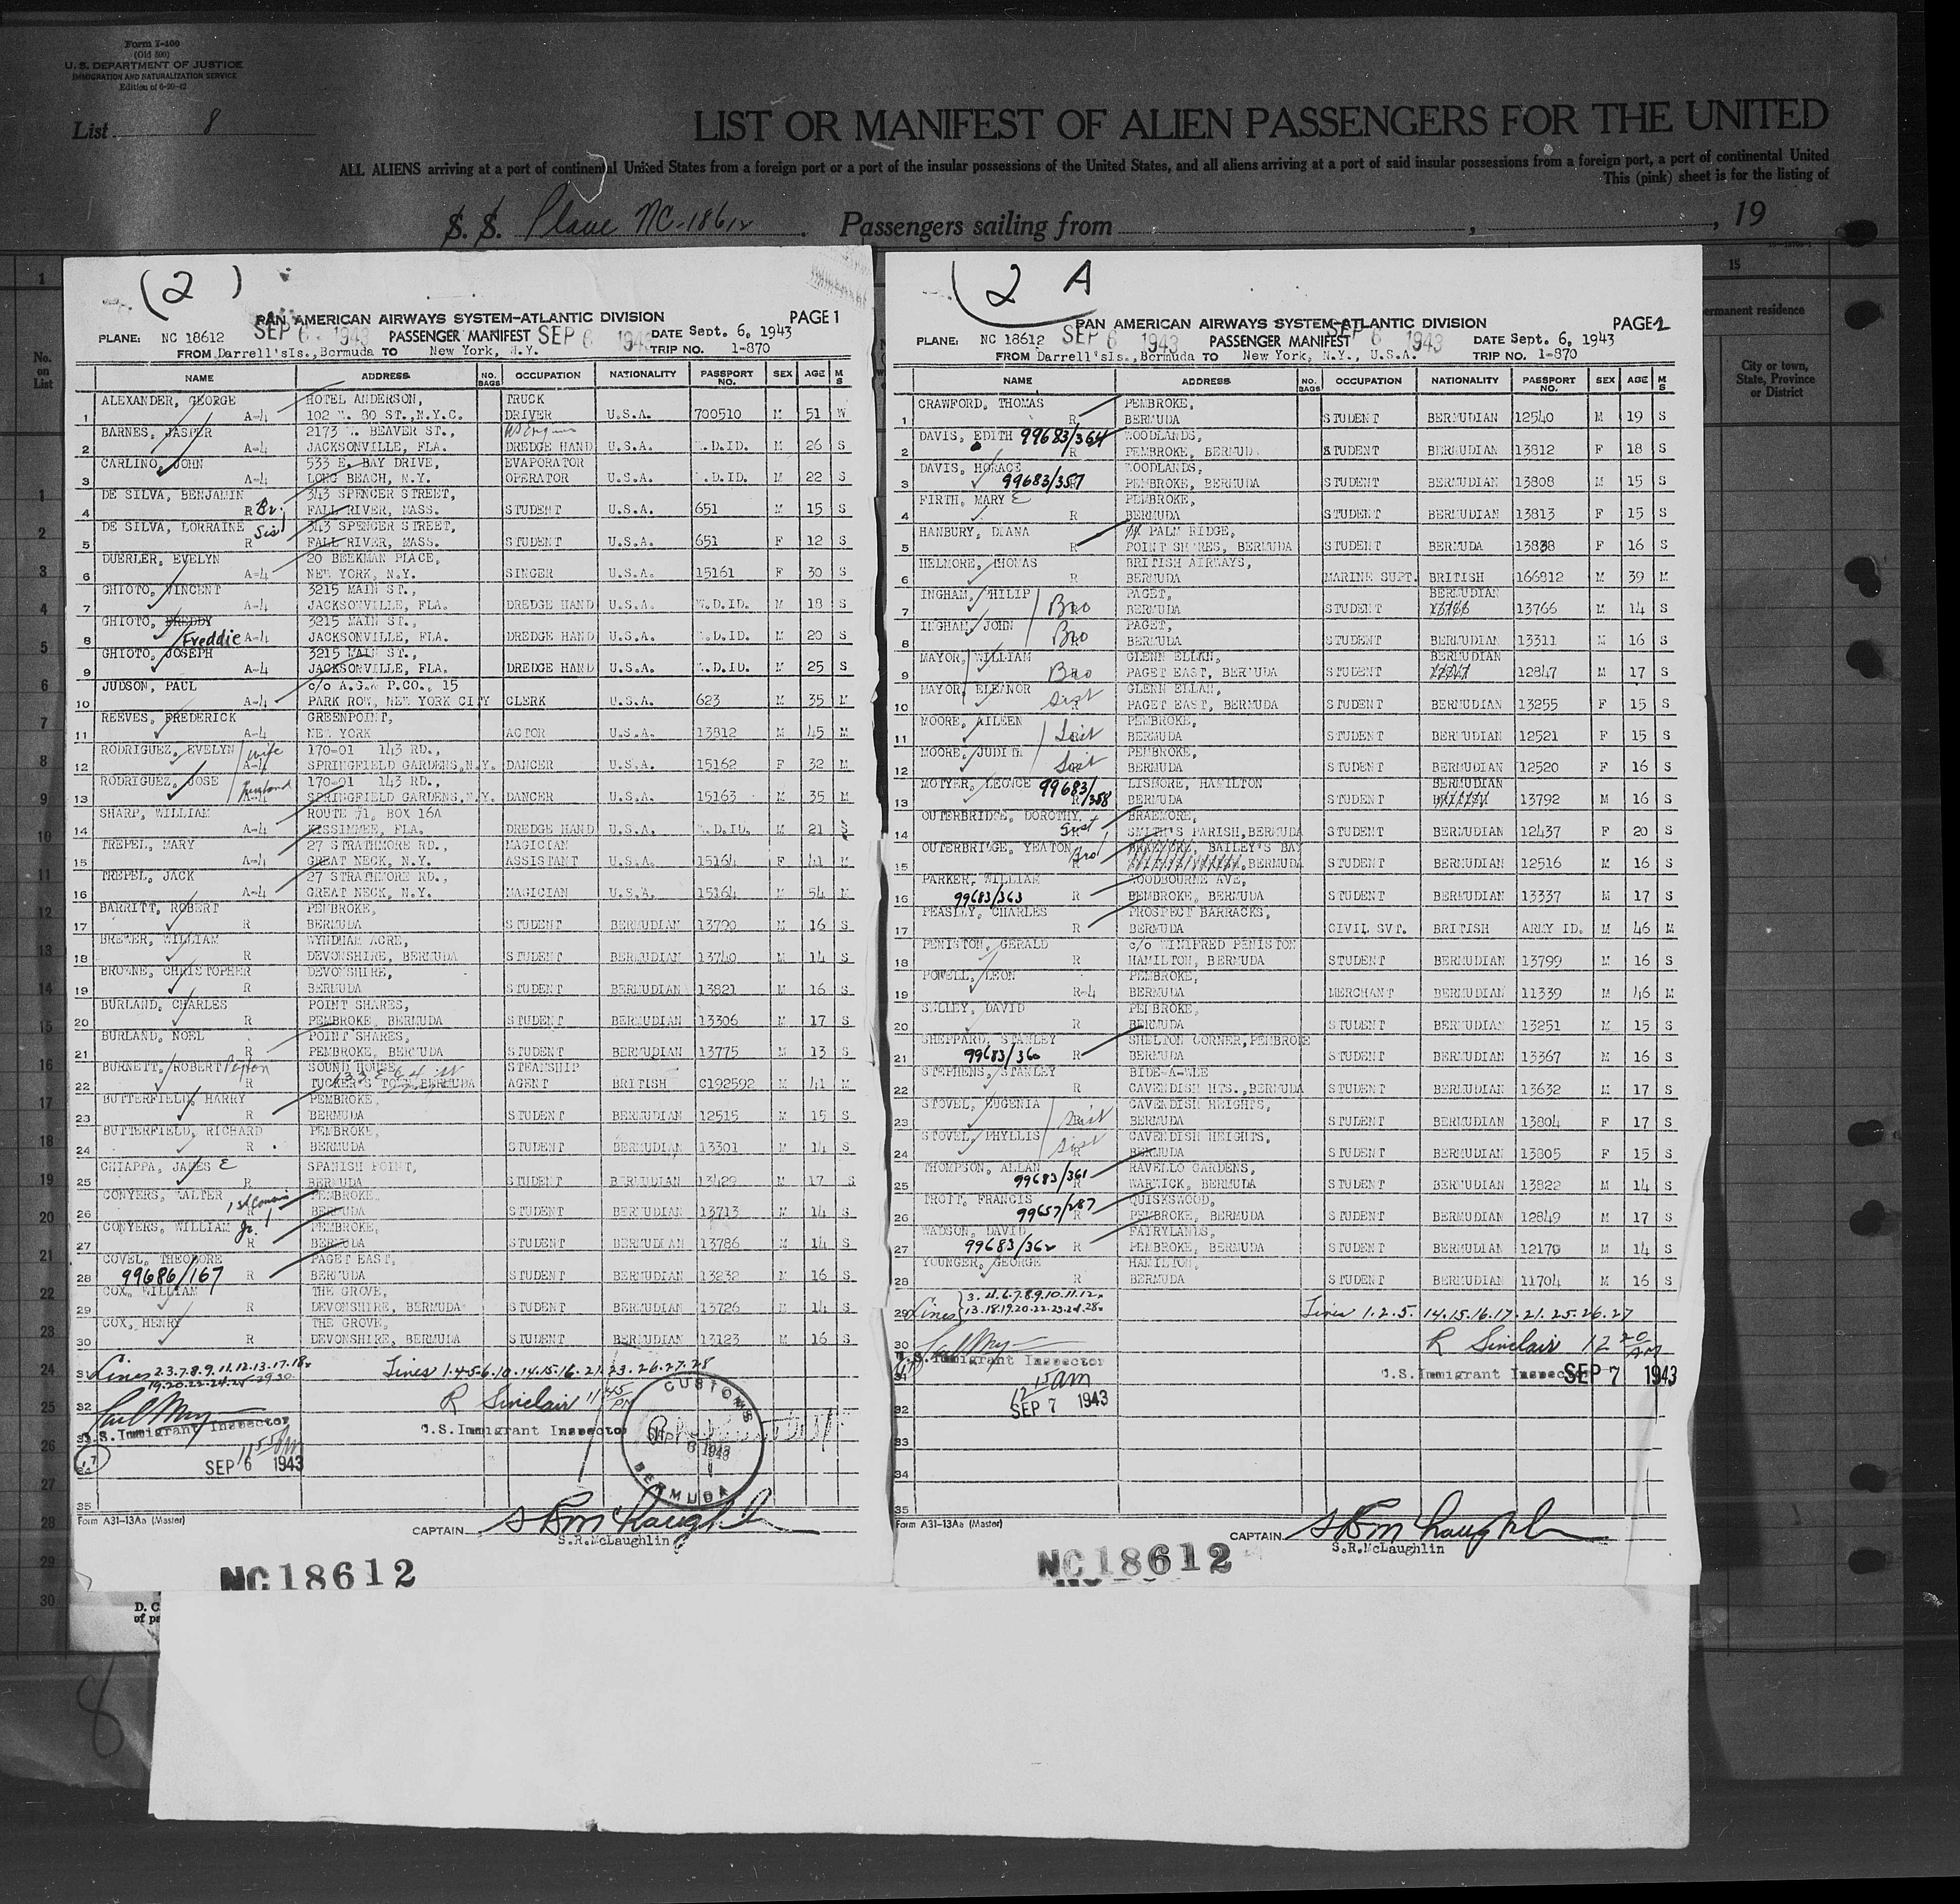 Form I-400
(Old 500)
U. S. DEPARTMENT OF JUSTICE
IMMIGRATION AND NATURALIZATION SERVICE
Edition of 6-20-42
List 8
LIST OR MANIFEST OF ALIEN PASSENGERS FOR THE UNITED
ALL ALIENS arriving at a port of continental United States from a foreign port or a port of the insular possessions of the United States, and all aliens arriving at a port of said insular possessions from a foreign port, a port of continental United
This (pink) sheet is for the listing of
S. S. Plane NC-18612 Passengers sailing from , , 19
(2)
PAN AMERICAN AIRWAYS SYSTEM-ATLANTIC DIVISION PAGE 1
PLANE: NC 18612 SEP 6 1943 PASSENGER MANIFEST SEP 6 194 DATE Sept. 6, 1943
FROM Darrell'sIs., Bermuda TO New York, N.Y. TRIP NO. 1-870
NAME ADDRESS NO. BAGS OCCUPATION NATIONALITY PASSPORT NO. SEX AGE M S
ALEXANDER, GEORGE HOTEL ANDERSON, TRUCK
1 A-4 102 W. 80 ST., N.Y.C. DRIVER U.S.A. 700510 M 51 W
BARNES, JASPER 2173 W. BEAVER ST.,
2 A-4 JACKSONVILLE, FLA. DREDGE HAND U.S.A. W.D.ID. M 26 S
CARLINO, JOHN 533 E. BAY DRIVE, EVAPORATOR
3 A-4 LONG BEACH, N.Y. OPERATOR U.S.A. W.D.ID. M 22 S
DE SILVA, BENJAMIN 343 SPENCER STREET,
4 R Br. FALL RIVER, MASS. STUDENT U.S.A. 651 M 15 S
DE SILVA, LORRAINE Sis 343 SPENCER STREET,
5 R FALL RIVER, MASS. STUDENT U.S.A. 651 F 12 S
DUERLER, EVELYN 20 BEEKMAN PLACE,
6 A-4 NEW YORK, N.Y. SINGER U.S.A. 15161 F 30 S
GHIOTO, VINCENT 3215 MAIN ST.,
7 A-4 JACKSONVILLE, FLA. DREDGE HAND U.S.A. W.D.ID. M 18 S
GHIOTO, FREDDY 3215 MAIN ST.,
8 Freddie A-4 JACKSONVILLE, FLA. DREDGE HAND U.S.A. W.D.ID. M 20 S
GHIOTO, JOSEPH 3215 MAIN ST.,
9 A-4 JACKSONVILLE, FLA. DREDGE HAND U.S.A. W.D.ID. M 25 S
JUDSON, PAUL c/o A.G. P.CO., 15
10 A-4 PARK ROW, NEW YORK CITY CLERK U.S.A. 623 M 35 M
REEVES, FREDERICK GREENPOINT,
11 A-4 NEW YORK ACTOR U.S.A. 13812 M 45 M
RODRIGUEZ, EVELYN wife 170-01 143 RD.,
12 A-4 SPRINGFIELD GARDENS,N.Y. DANCER U.S.A. 15162 F 32 M
RODRIGUEZ, JOSE husband 170-01 143 RD.,
13 A-4 SPRINGFIELD GARDENS,N.Y. DANCER U.S.A. 15163 M 35 M
SHARP, WILLIAM ROUTE #1, BOX 16A
14 A-4 KISSIMMEE, FLA. DREDGE HAND U.S.A. W.D.ID. M 21 S
TREPEL, MARY 27 STRATHMORE RD., MAGICIAN
15 A-4 GREAT NECK, N.Y. ASSISTANT U.S.A. 15164 F 41 M
TREPEL, JACK 27 STRATHMORE RD.,
16 A-4 GREAT NECK, N.Y. MAGICIAN U.S.A. 15164 M 54 M
BARRITT, ROBERT PEMBROKE,
17 R BERMUDA STUDENT BERMUDIAN 13790 M 16 S
BREWER, WILLIAM WYNDHAM ACRE,
18 R DEVONSHIRE, BERMUDA STUDENT BERMUDIAN 13740 M 14 S
BROWNE, CHRISTOPHER DEVONSHIRE,
19 R BERMUDA STUDENT BERMUDIAN 13821 M 16 S
BURLAND, CHARLES POINT SHARES,
20 R PEMBROKE, BERMUDA STUDENT BERMUDIAN 13306 M 17 S
BURLAND, NOEL POINT SHARES,
21 R PEMBROKE, BERMUDA STUDENT BERMUDIAN 13775 M 13 S
BURNETT, ROBERT Peyton SOUND HOUSE, STEAMSHIP
22 R TUCKER'S TOWN,BERMUDA AGENT BRITISH C192592 M 41 M
BUTTERFIELD, HARRY PEMBROKE,
23 R BERMUDA STUDENT BERMUDIAN 12515 M 15 S
BUTTERFIELD, RICHARD PEMBROKE,
24 R BERMUDA STUDENT BERMUDIAN 13301 M 14 S
CHIAPPA, JAMES E SPANISH POINT,
25 R BERMUDA STUDENT BERMUDIAN 13429 M 17 S
CONYERS, WALTER 1st Cousin PEMBROKE,
26 BERMUDA STUDENT BERMUDIAN 13713 M 14 S
CONYERS, WILLIAM Jr. PEMBROKE,
27 R BERMUDA STUDENT BERMUDIAN 13786 M 14 S
COVEL, THEODORE PAGET EAST,
28 99686/167 R BERMUDA STUDENT BERMUDIAN 13232 M 16 S
COX, WILLIAM THE GROVE,
29 R DEVONSHIRE, BERMUDA STUDENT BERMUDIAN 13726 M 14 S
COX, HENRY THE GROVE,
30 R DEVONSHIRE, BERMUDA STUDENT BERMUDIAN 13123 M 16 S
31 Lines 2.3.7.8.9.11.12.13.17.18. Lines 1.4.5.6.10.14.15.16.21.23.26.27.28
19.20.22.24.25.29.30
32 R Sinclair 11 45 PM
U.S. Immigrant Inspector U.S.Immigrant Inspector
SEP 6 1943
CUSTOMS BERMUDA
35
Form A31-13Aa (Master)
CAPTAIN S R McLaughlin
S.R.McLaughlin
NC18612
2 A
PAN AMERICAN AIRWAYS SYSTEM-ATLANTIC DIVISION PAGE 2
PLANE: NC 18612 SEP 6 1943 PASSENGER MANIFEST SEP 6 1943 DATE Sept. 6, 1943
FROM Darrell'sIs., Bermuda TO New York, N.Y., U.S.A. TRIP NO. 1-870
NAME ADDRESS NO. BAGS OCCUPATION NATIONALITY PASSPORT NO. SEX AGE M S
CRAWFORD, THOMAS PEMBROKE,
1 R BERMUDA STUDENT BERMUDIAN 12540 M 19 S
DAVIS, EDITH 99683/364 WOODLANDS,
2 R PEMBROKE, BERMUD. STUDENT BERMUDIAN 13812 F 18 S
DAVIS, HORACE WOODLANDS,
3 99683/357 PEMBROKE, BERMUDA STUDENT BERMUDIAN 13808 M 15 S
FIRTH, MARY E PEMBROKE,
4 R BERMUDA STUDENT BERMUDIAN 13813 F 15 S
HANBURY, DIANA PALM RIDGE,
5 R POINT SHARES, BERMUDA STUDENT BERMUDA 13838 F 16 S
HELMORE, THOMAS BRITISH AIRWAYS,
6 R BERMUDA MARINE SUPT. BRITISH 166812 M 39 M
INGHAM, PHILIP PAGET, BERMUDIAN
7 Bro BERMUDA STUDENT 13766 13766 M 14 S
INGHAM, JOHN PAGET,
8 Bro BERMUDA STUDENT BERMUDIAN 13311 M 16 S
MAYOR, WILLIAM GLENN ELLAN, BERMUDIAN
9 Bro PAGET EAST, BERMUDA STUDENT 12847 12847 M 17 S
MAYOR, ELEANOR GLENN ELLAN,
10 Sist PAGET EAST, BERMUDA STUDENT BERMUDIAN 13255 F 15 S
MOORE, AILEEN PEMBROKE,
11 Sist BERMUDA STUDENT BERMUDIAN 12521 F 15 S
MOORE, JUDITH PEMBROKE,
12 Sist BERMUDA STUDENT BERMUDIAN 12520 F 16 S
MOTYER, LEONCE 99683/358 LISMORE, HAMILTON BERMUDIAN
13 R BERMUDA STUDENT 13792 M 16 S
OUTERBRIDGE, DOROTHY BRAEMORE,
14 Sist SMITH'S PARISH,BERMUDA STUDENT BERMUDIAN 12437 F 20 S
OUTERBRIDGE, YEATON Bro BAILEY'S BAY
15 R BERMUDA STUDENT BERMUDIAN 12516 M 16 S
PARKER, WILLIAM WOODBOURNE AVE,
16 99683/363 R PEMBROKE, BERMUDA STUDENT BERMUDIAN 13337 M 17 S
PEASLEY, CHARLES PROSPECT BARRACKS,
17 R BERMUDA CIVIL SVT. BRITISH ARMY ID. M 46 M
PENISTON, GERALD c/o WINIFRED PENISTON
18 R HAMILTON, BERMUDA STUDENT BERMUDIAN 13799 M 16 S
POWELL, LEON PEMBROKE,
19 R-4 BERMUDA MERCHANT BERMUDIAN 11339 M 46 M
SELLEY, DAVID PEMBROKE,
20 R BERMUDA STUDENT BERMUDIAN 13251 M 15 S
SHEPPARD, STANLEY SHELTON CORNER,PEMBROKE
21 99683/360 R BERMUDA STUDENT BERMUDIAN 13367 M 16 S
STEPHENS, STANLEY BIDE-A-WEE
22 R CAVENDISH HTS.,BERMUDA STUDENT BERMUDIAN 13632 M 17 S
STOVEL, EUGENIA CAVENDISH HEIGHTS,
23 Sist BERMUDA STUDENT BERMUDIAN 13804 F 17 S
STOVEL, PHYLLIS CAVENDISH HEIGHTS,
24 Sist BERMUDA STUDENT BERMUDIAN 13805 F 15 S
THOMPSON, ALLAN RAVELLO GARDENS,
25 99683/361 R WARWICK, BERMUDA STUDENT BERMUDIAN 13822 M 14 S
TROTT, FRANCIS QUISKSWOOD,
26 99657/287 R PEMBROKE, BERMUDA STUDENT BERMUDIAN 12849 M 17 S
WADSON, DAVID FAIRYLANDS,
27 99683/362 R PEMBROKE, BERMUDA STUDENT BERMUDIAN 12170 M 14 S
YOUNGER, GEORGE HAMILTON,
28 R BERMUDA STUDENT BERMUDIAN 11704 M 16 S
29 Lines 3.4.6.7.8.9.10.11.12. Lines 1.2.5.14.15.16.17.21.25.26.27
13.18.19.20.22.23.24.28.
30 R Sinclair 12 20 AM
U.S. Immigrant Inspector U.S.Immigrant Inspector SEP 7 1943
31 12 15 am
32 SEP 7 1943
33
34
35
Form A31-13Aa (Master)
CAPTAIN S R McLaughlin
S.R.McLaughlin
NC18612
15
permanent residence
City or town,
State, Province
or District
No. on List
8